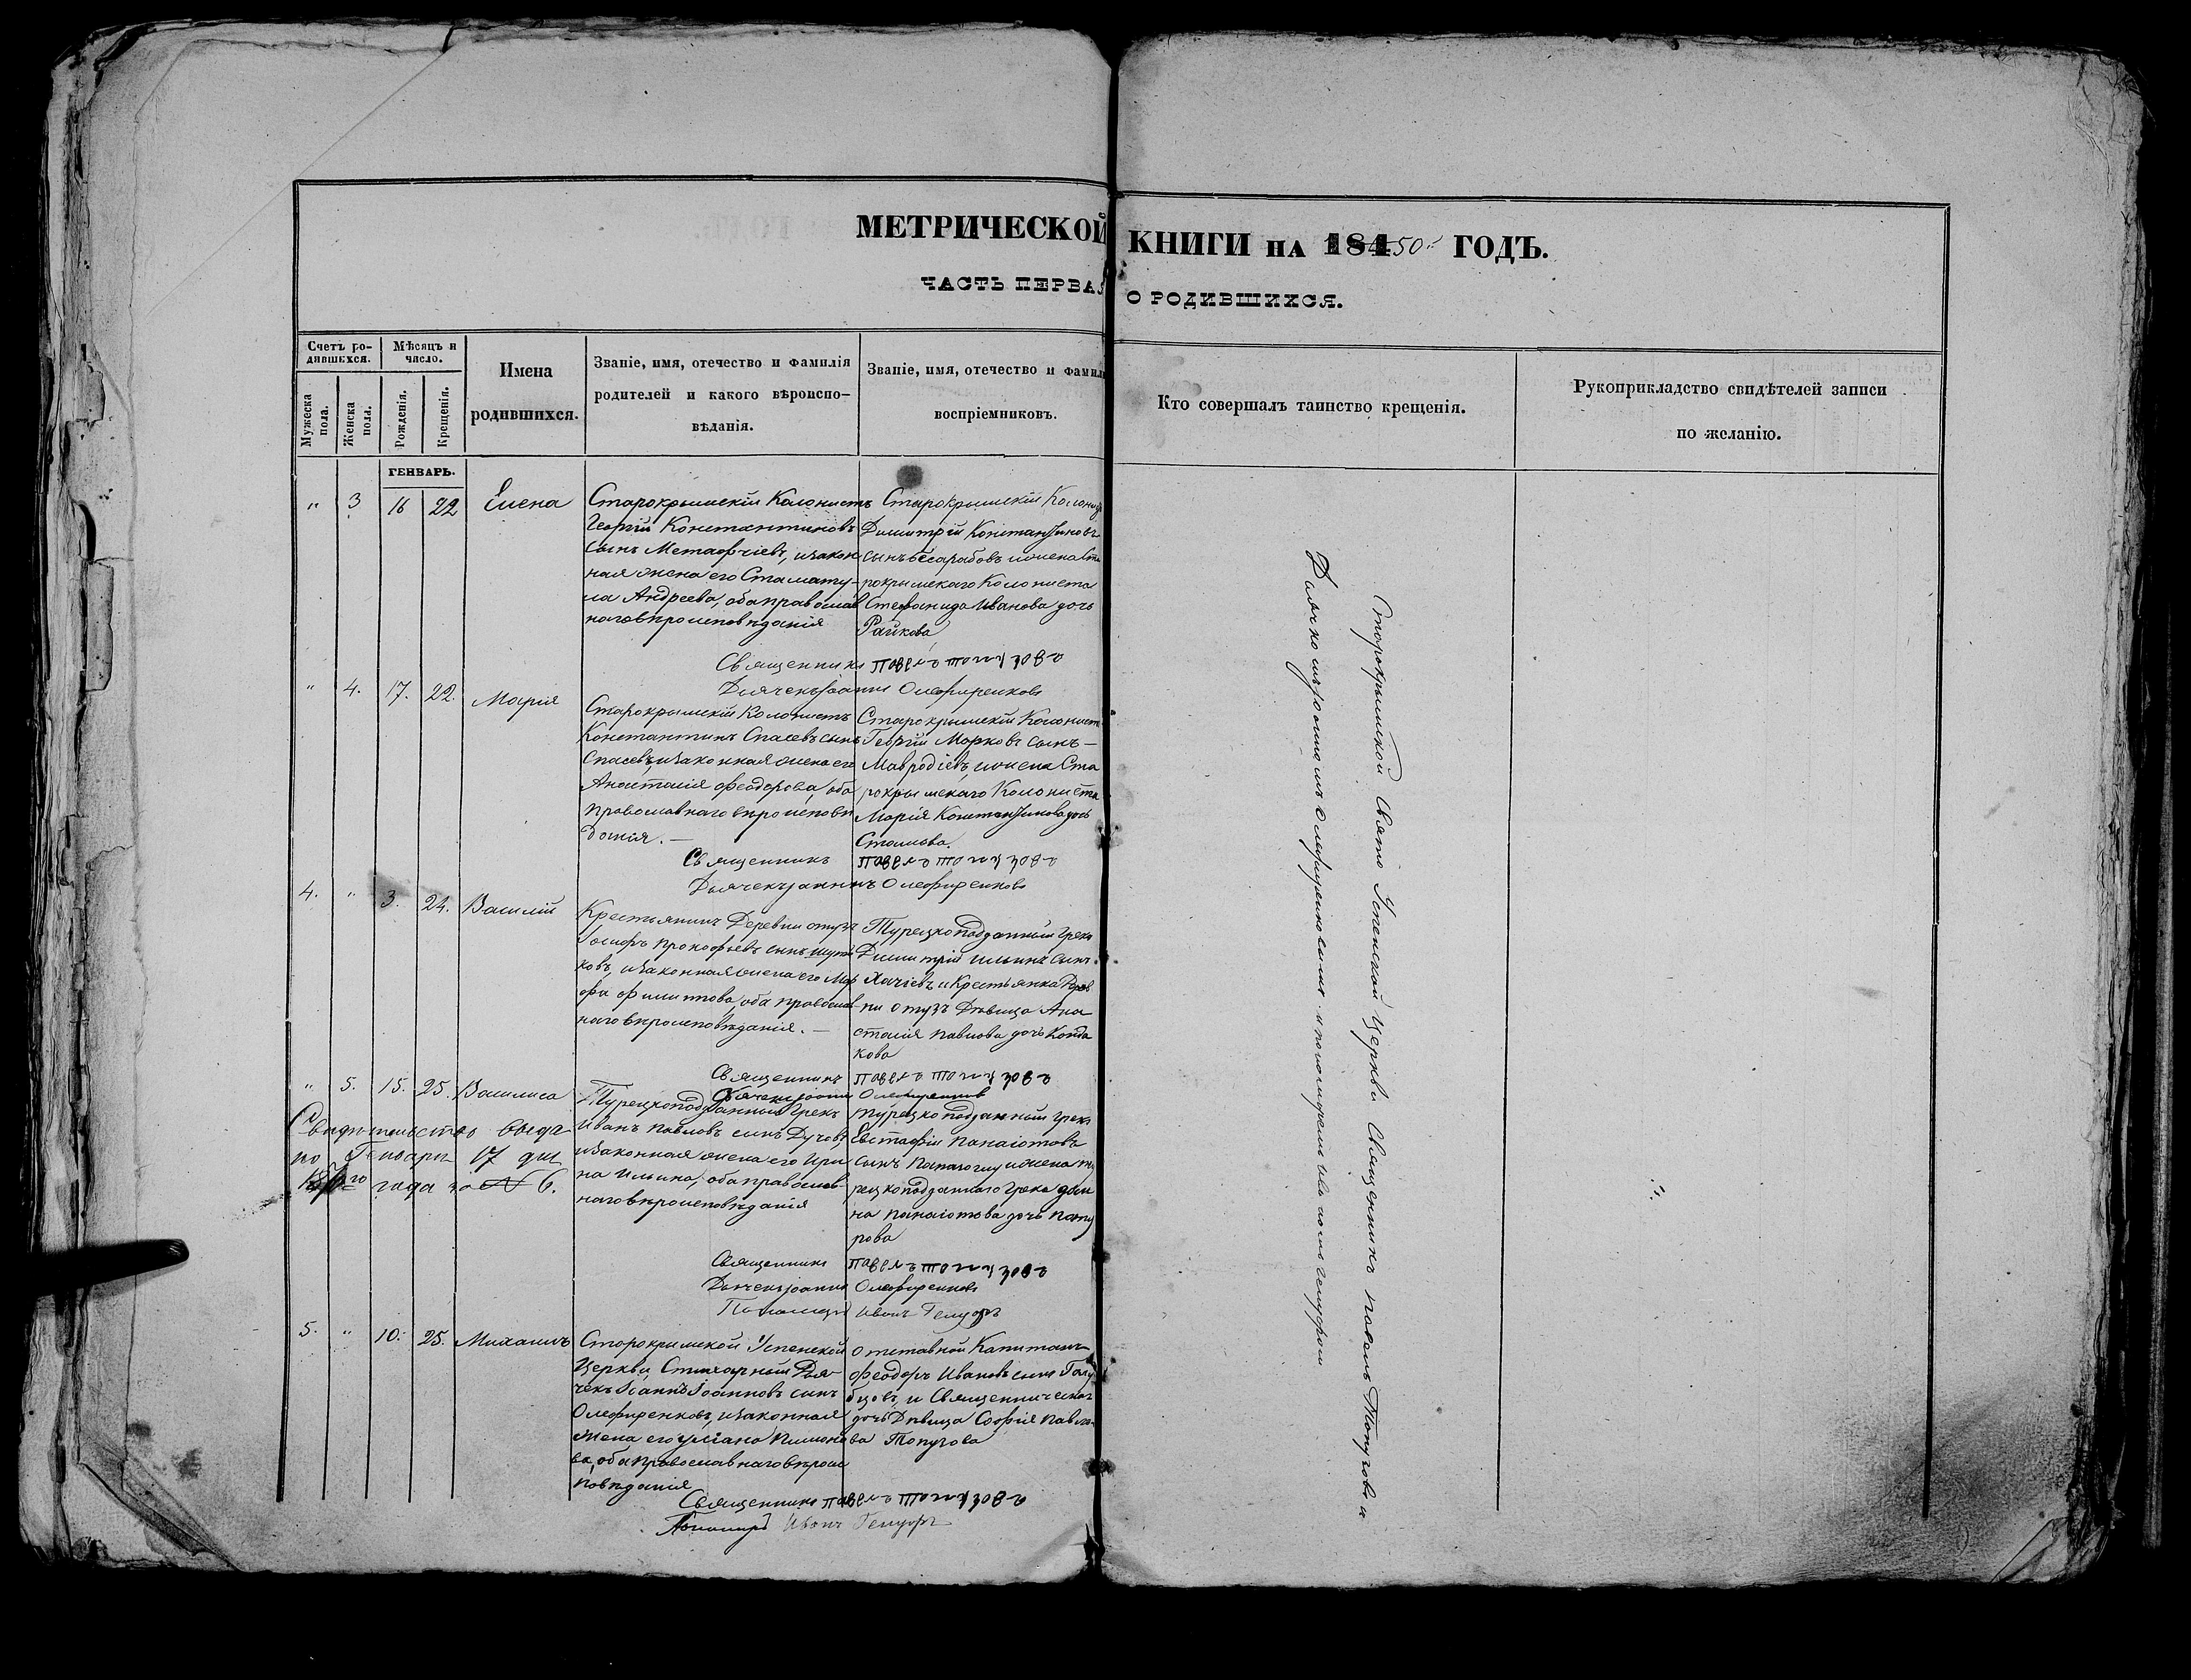 МЕТРИЧЕСКОЙ КНИГИ НА 184 50й ГОДЪ.
ЧАСТЬ ПЕРВАЯ О РОДИВШИХСЯ.
Счетъ родившихся.
Мужеска пола.
Женска пола.
Мѣсяцъ и число.
Рожденія.
Крещенія.
Имена
родившихся.
Званіе, имя, отечество и фамилія
родителей и какого вѣроиспо-
вѣданія.
Званіе, имя, отечество и фамил
воспріемниковъ.
Кто совершалъ таинство крещенія.
Рукоприкладство свидѣтелей записи
по желанію.
ГЕНВАРЬ.
" 3 16 22 Елена
Старокрымскій Колонистъ
Георгій Константиновъ
сынъ Метафчіевъ, изакон
ная жена его Стамату-
ла Андреева, оба православ
наговѣроисповѣданія
Старокрымскій Колонис
Димитрій Константиновъ
сынъ бесарабовъ ижена Ста
рокрымскаго Колониста
Стефанида Иванова дочь
Райкова
Священникъ Павелъ Топузовъ
Дьячекъ Іоаннъ Олефиренковъ
" 4. 17. 22. Марія
Старокрымскій Колонистъ
Константинъ Спасевъ сынъ
Спасевъ, изаконная жена его
Анастасія Феодорова, оба
православнаго вѣроисповѣ
данія. —
Старокрымскій Колонист
Георгій Марковъ сынъ —
Мавродіевъ, ижена Ста
рокрымскаго Колониста
Марія Константинова дочь
Стамова.
Священникъ Павелъ Топузовъ
Дьячекъ Іоаннъ Олефиренковъ
4. " 3. 24. Василій
Крестьянинъ Деревни отузъ
Іосифъ Прокофьевъ сынъ
ковъ, изаконная жена его Мар
фа Филипова, оба православ
наго вѣроисповѣданія. —
Турецкоподданный Грекъ
Димитрій Ильинъ сынъ
Хачіевъ и Крестьянка Дерев
ни отузъ Дѣвица Ана
стасія Павлова дочь Конда
кова
Священникъ Павелъ Топузовъ
Дьячекъ Іоаннъ Олефиренковъ
" 5. 15. 25. Василиса
Свидѣтельство выда
но Генваря 17 дня
го года за № 6.
Турецкоподданный Грекъ
Иванъ Павловъ сынъ Дучовъ,
изаконная жена его Ири
на Ильина, оба православ
наговѣроисповѣданія
Турецкоподданный Грекъ
Евстафій Панаіотовъ
сынъ ижена ту
рецкоподданаго Грека
на Панаіотова дочь
рова
Священникъ Павелъ Топузовъ
Дьячекъ Іоаннъ Олефиренковъ
Пономарь Иванъ
5. " 10. 25. Михаилъ
Старокрымской Успенской
Церкви, Стихарный Дья-
чекъ Іоаннъ Іоанновъ сынъ
Олефиренковъ, изаконная
жена его Уліана Пимоно
ва, оба православнаго вѣроис
повѣданія
отставной Капитанъ
Феодоръ Ивановъ сынъ Голу
бцовъ, и Священническая
дочь Дѣвица Софія Павло-
ва Топузова
Священникъ Павелъ Топузовъ
Пономарь Иванъ
Старокрымской Свято Успенской Церкви Священникъ Павелъ Топузовъ и